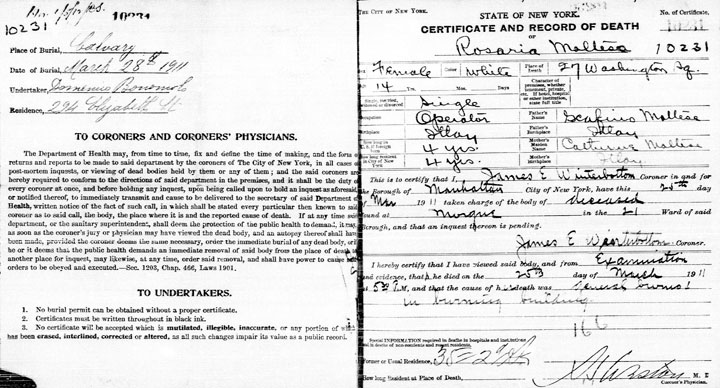 10231
Place of Burial, Calvary
Date of Burial, March 28th 1911
Undertaker, Domenico Bonomolo
Residence, 294 Elizabeth St
TO CORONERS AND CORONERS' PHYSICIANS.
The Department of Health may, from time to time, fix and define the time of making, and the form of
returns and reports to be made to said department by the coroners of The City of New York, in all cases of
post-mortem inquests, or viewing of dead bodies held by them or any of them; and the said coroners are
hereby required to conform to the directions of said department in the premises, and it shall be the duty of
every coroner at once, and before holding any inquest, upon being called upon to hold an inquest as aforesaid,
or notified thereof, to immediately transmit and cause to be delivered to the secretary of said Department of
Health, written notice of the fact of such call, in which shall be stated every particular then known to said
coroner as to said call, the body, the place where it is and the reported cause of death. If at any time said
department, or the sanitary superintendent, shall deem the protection of the public health to demand, it may,
as soon as the coroner's jury or physician may have viewed the dead body, and an autopsy thereof shall have
been made, provided the coroner deems the same necessary, order the immediate burial of any dead body, or if
he or it deems that the public health demands an immediate removal of said body from the place of death to
another place for inquest, may likewise, at any time, order said removal, and shall have power to cause
orders to be obeyed and executed.—Sec. 1203, Chap. 466, Laws 1901.
TO UNDERTAKERS.
1. No burial permit can be obtained without a proper certificate.
2. Certificates must be written throughout in black ink.
3. No certificate will be accepted which is mutilated, illegible, inaccurate, or any portion of which
has been erased, interlined, corrected or altered, as all such changes impair its value as a public record.
THE CITY OF NEW YORK.
STATE OF NEW YORK.
No. of Certificate,
CERTIFICATE AND RECORD OF DEATH
10231
OF
Rosaria Maltese 10231
Sex Female Color White Place of Death 27 Washington Sq.
14 Yrs. Mos. Days
Character of premises, whether tenement, private, etc. If hotel, hospital or other institution, state full title
Single, married, widowed or divorced Single
Occupation Operator Father's Name Serafino Maltese
Birthplace Italy Father's Birthplace Italy
How long in U.S. if foreign born 4 yrs. Mother's Name Catherine Maltese
How long resident in City of New York 4 yrs. Mother's Birthplace Italy
This is to certify that I, James E Winterbottom Coroner in and for
the Borough of Manhattan City of New York, have this 26th day
of Mar 1911 taken charge of the body of deceased
found at Morgue in the 21 Ward of said
Borough, and that an inquest thereon is pending.
James E Winterbottom Coroner.
I hereby certify that I have viewed said body, and from Examination
and evidence, that he died on the 25th day of March 1911
at 5 30 P.M, and that the cause of h death was
in burning building
166
Special INFORMATION required in deaths in hospitals and institutions
and in deaths of non-residents and recent residents.
Former or Usual Residence, 35 2nd Ave
How long Resident at Place of Death,
M. D.
Coroner's Physician.